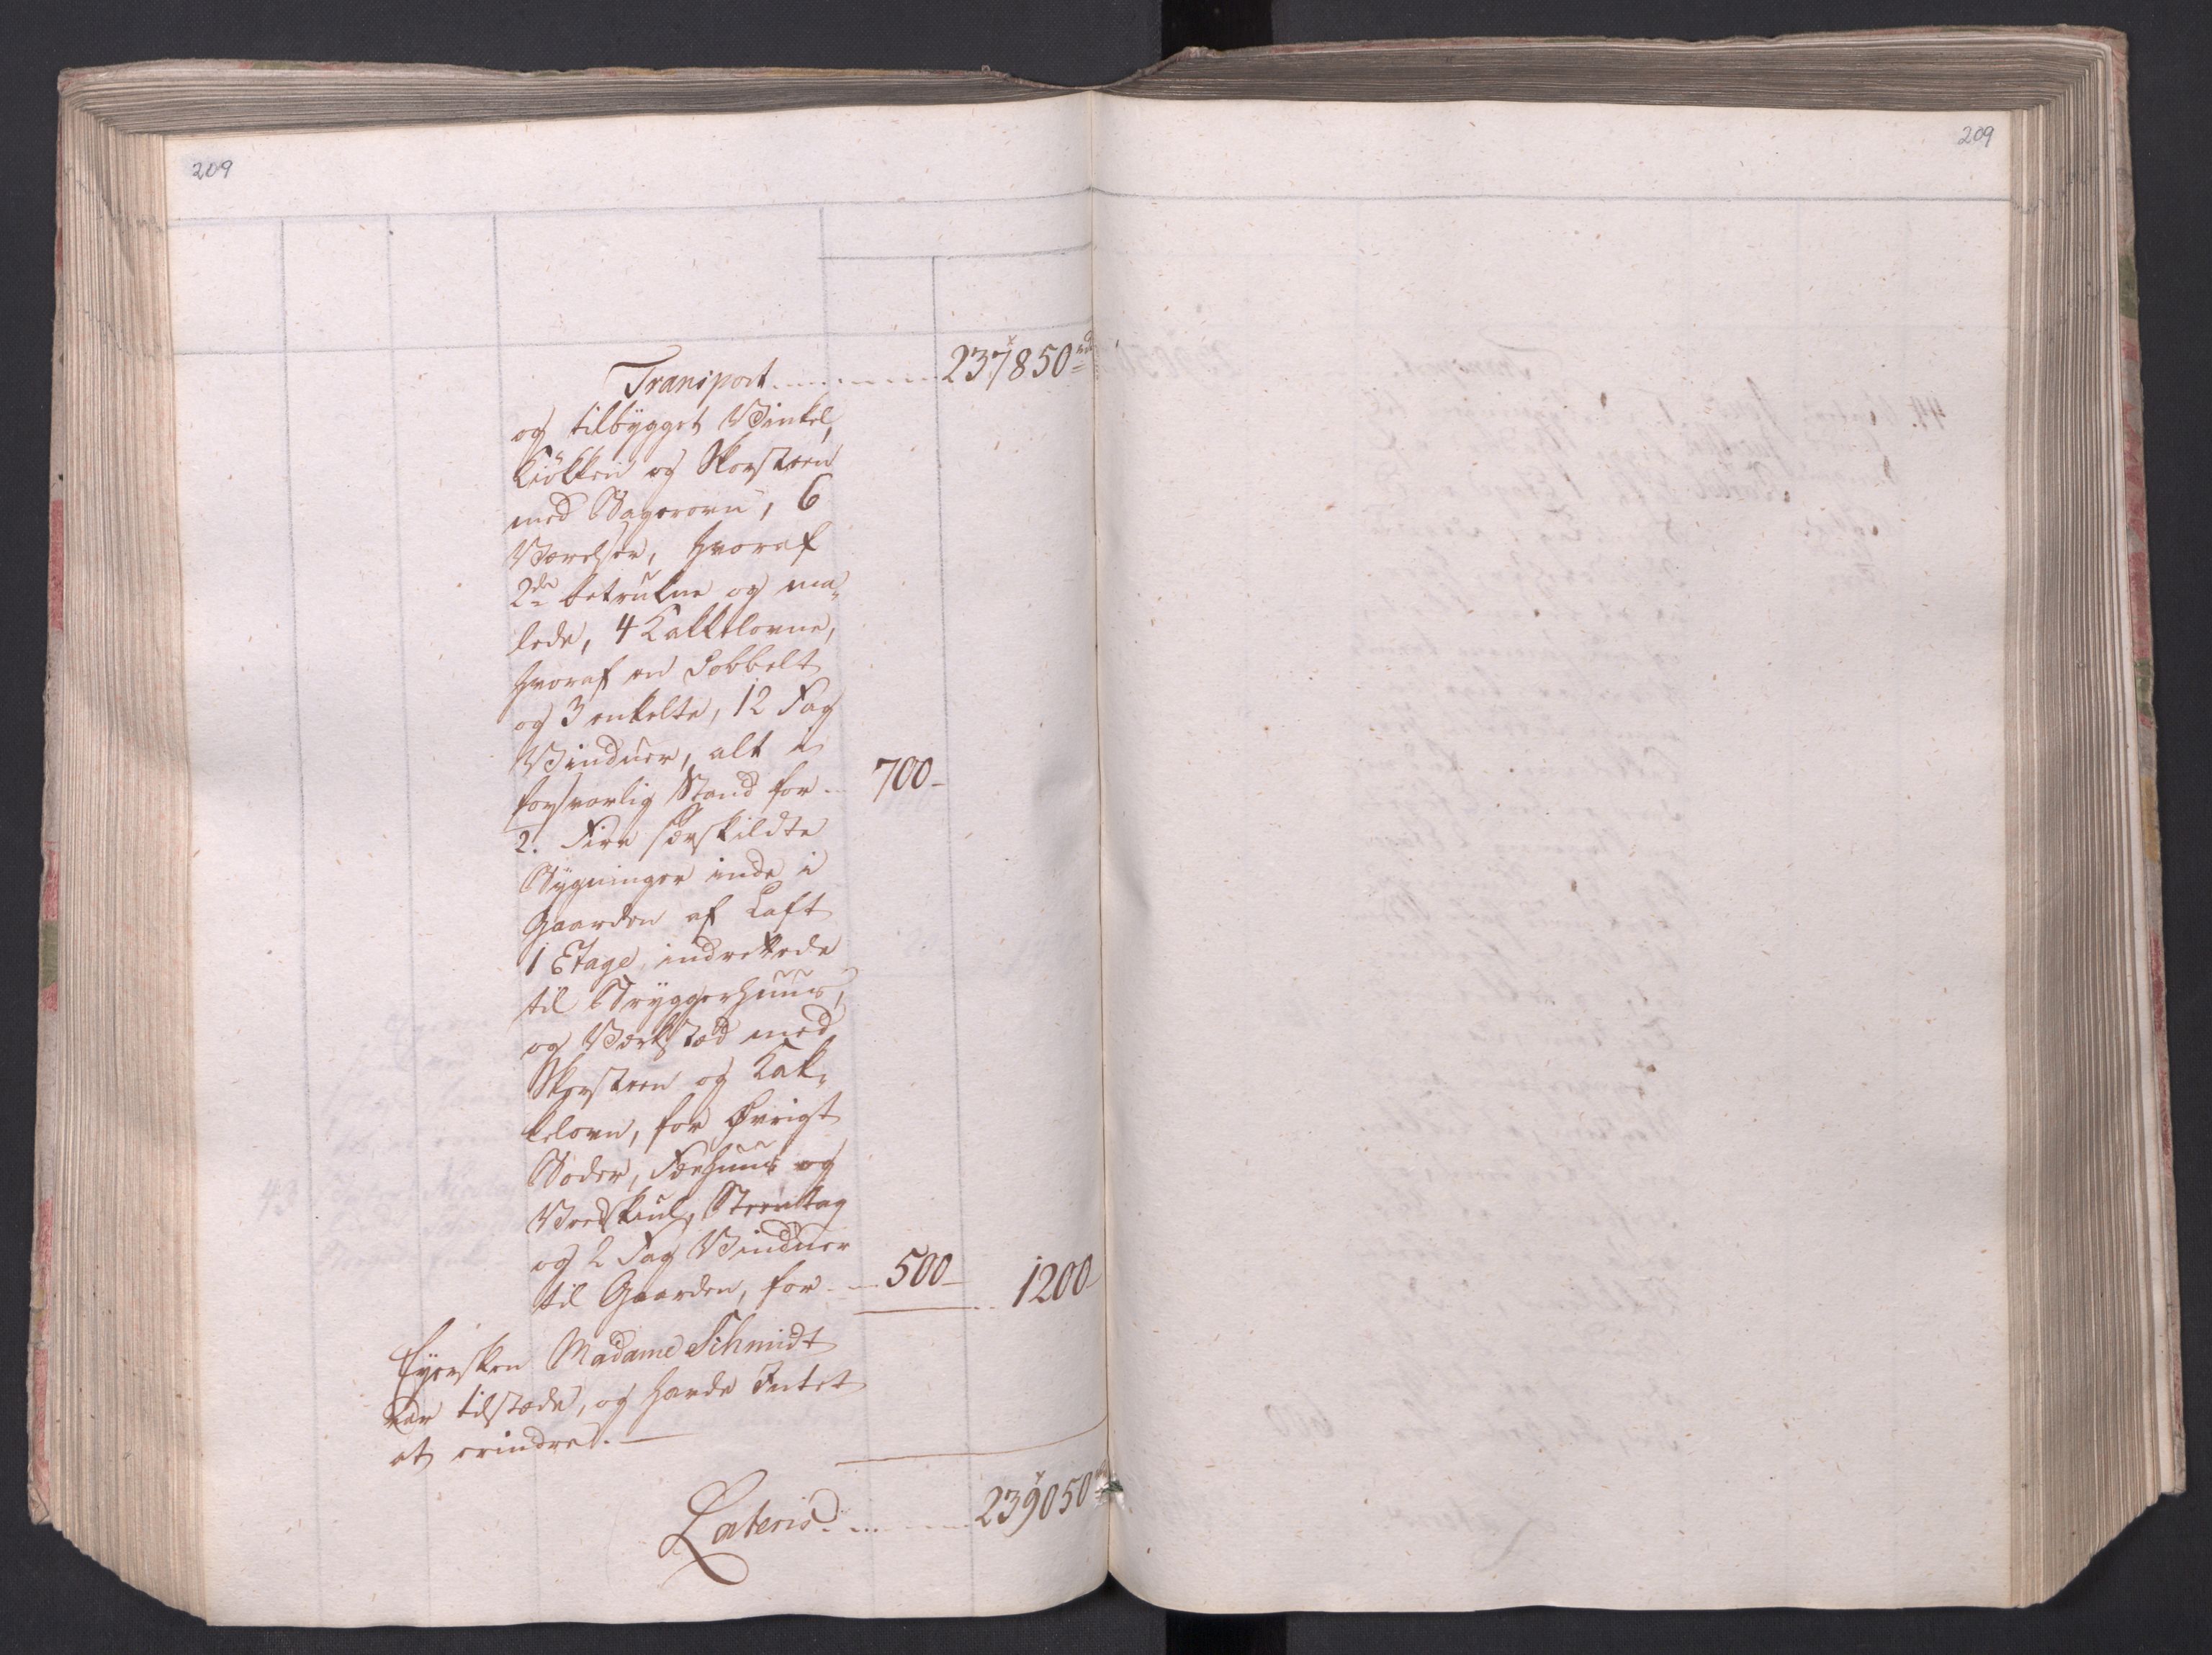 209
209
Transport 237850 rd
og tilbygget Vinkel,
Kiökken og Skorsteen
med Bagerovn, 6
Værelser, hvoraf
2de betrukne og ma„
lede, 4 Kakkelovne,
hvoraf en dobbelt
og 3 enkelte, 12 Fag
Vinduer, alt i
forsvarlig Stand for 700-
2. Fire særskildte
Bygninger inde i
Gaarden af Laft
1 Etage indrettede
til Bryggerhuus,
og Værksted med
Skorsteen og Kak„
kelovn, for Øvrigt
Boder, Fæehuus og
Veedskiul, Steentag
og 2 Fag Vinduer
til Gaarden, for 500- 1200-
Eyersken Madame Schmidt
var tilstæde, og havde Intet
at erindre.
Lateris 239050